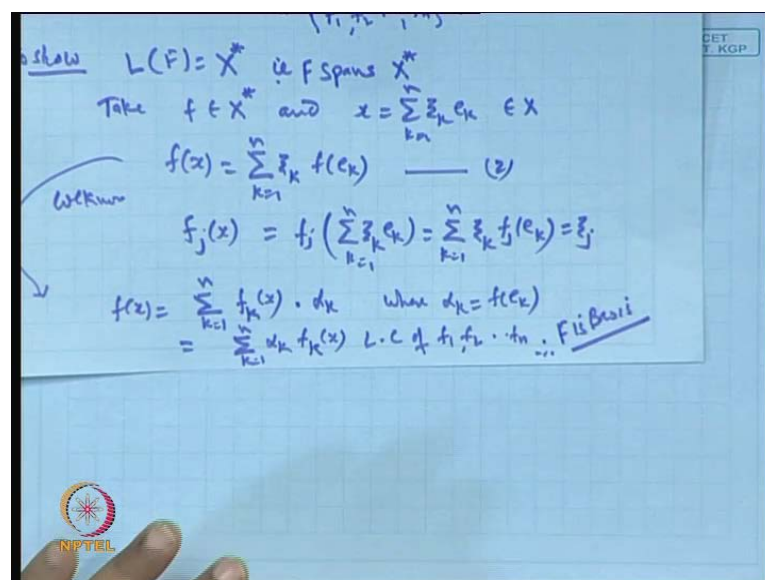 {f1, f2 . , fn}
CET
T. KGP
o show L(F) = X* ie F spans X*
Take f ∈ X* and x = Σ_{k=1}^{n} ξ_k e_k ∈ X
f(x) = Σ_{k=1}^{n} ξ_k f(e_k) —— (2)
we know
f_j(x) = f_j(Σ_{k=1}^{n} ξ_k e_k) = Σ_{k=1}^{n} ξ_k f_j(e_k) = ξ_j
f(x) = Σ_{k=1}^{n} f_k(x) . α_k where α_k = f(e_k)
= Σ_{k=1}^{n} α_k f_k(x) L.C of f1, f2 .. fn ... F is Basis
NPTEL